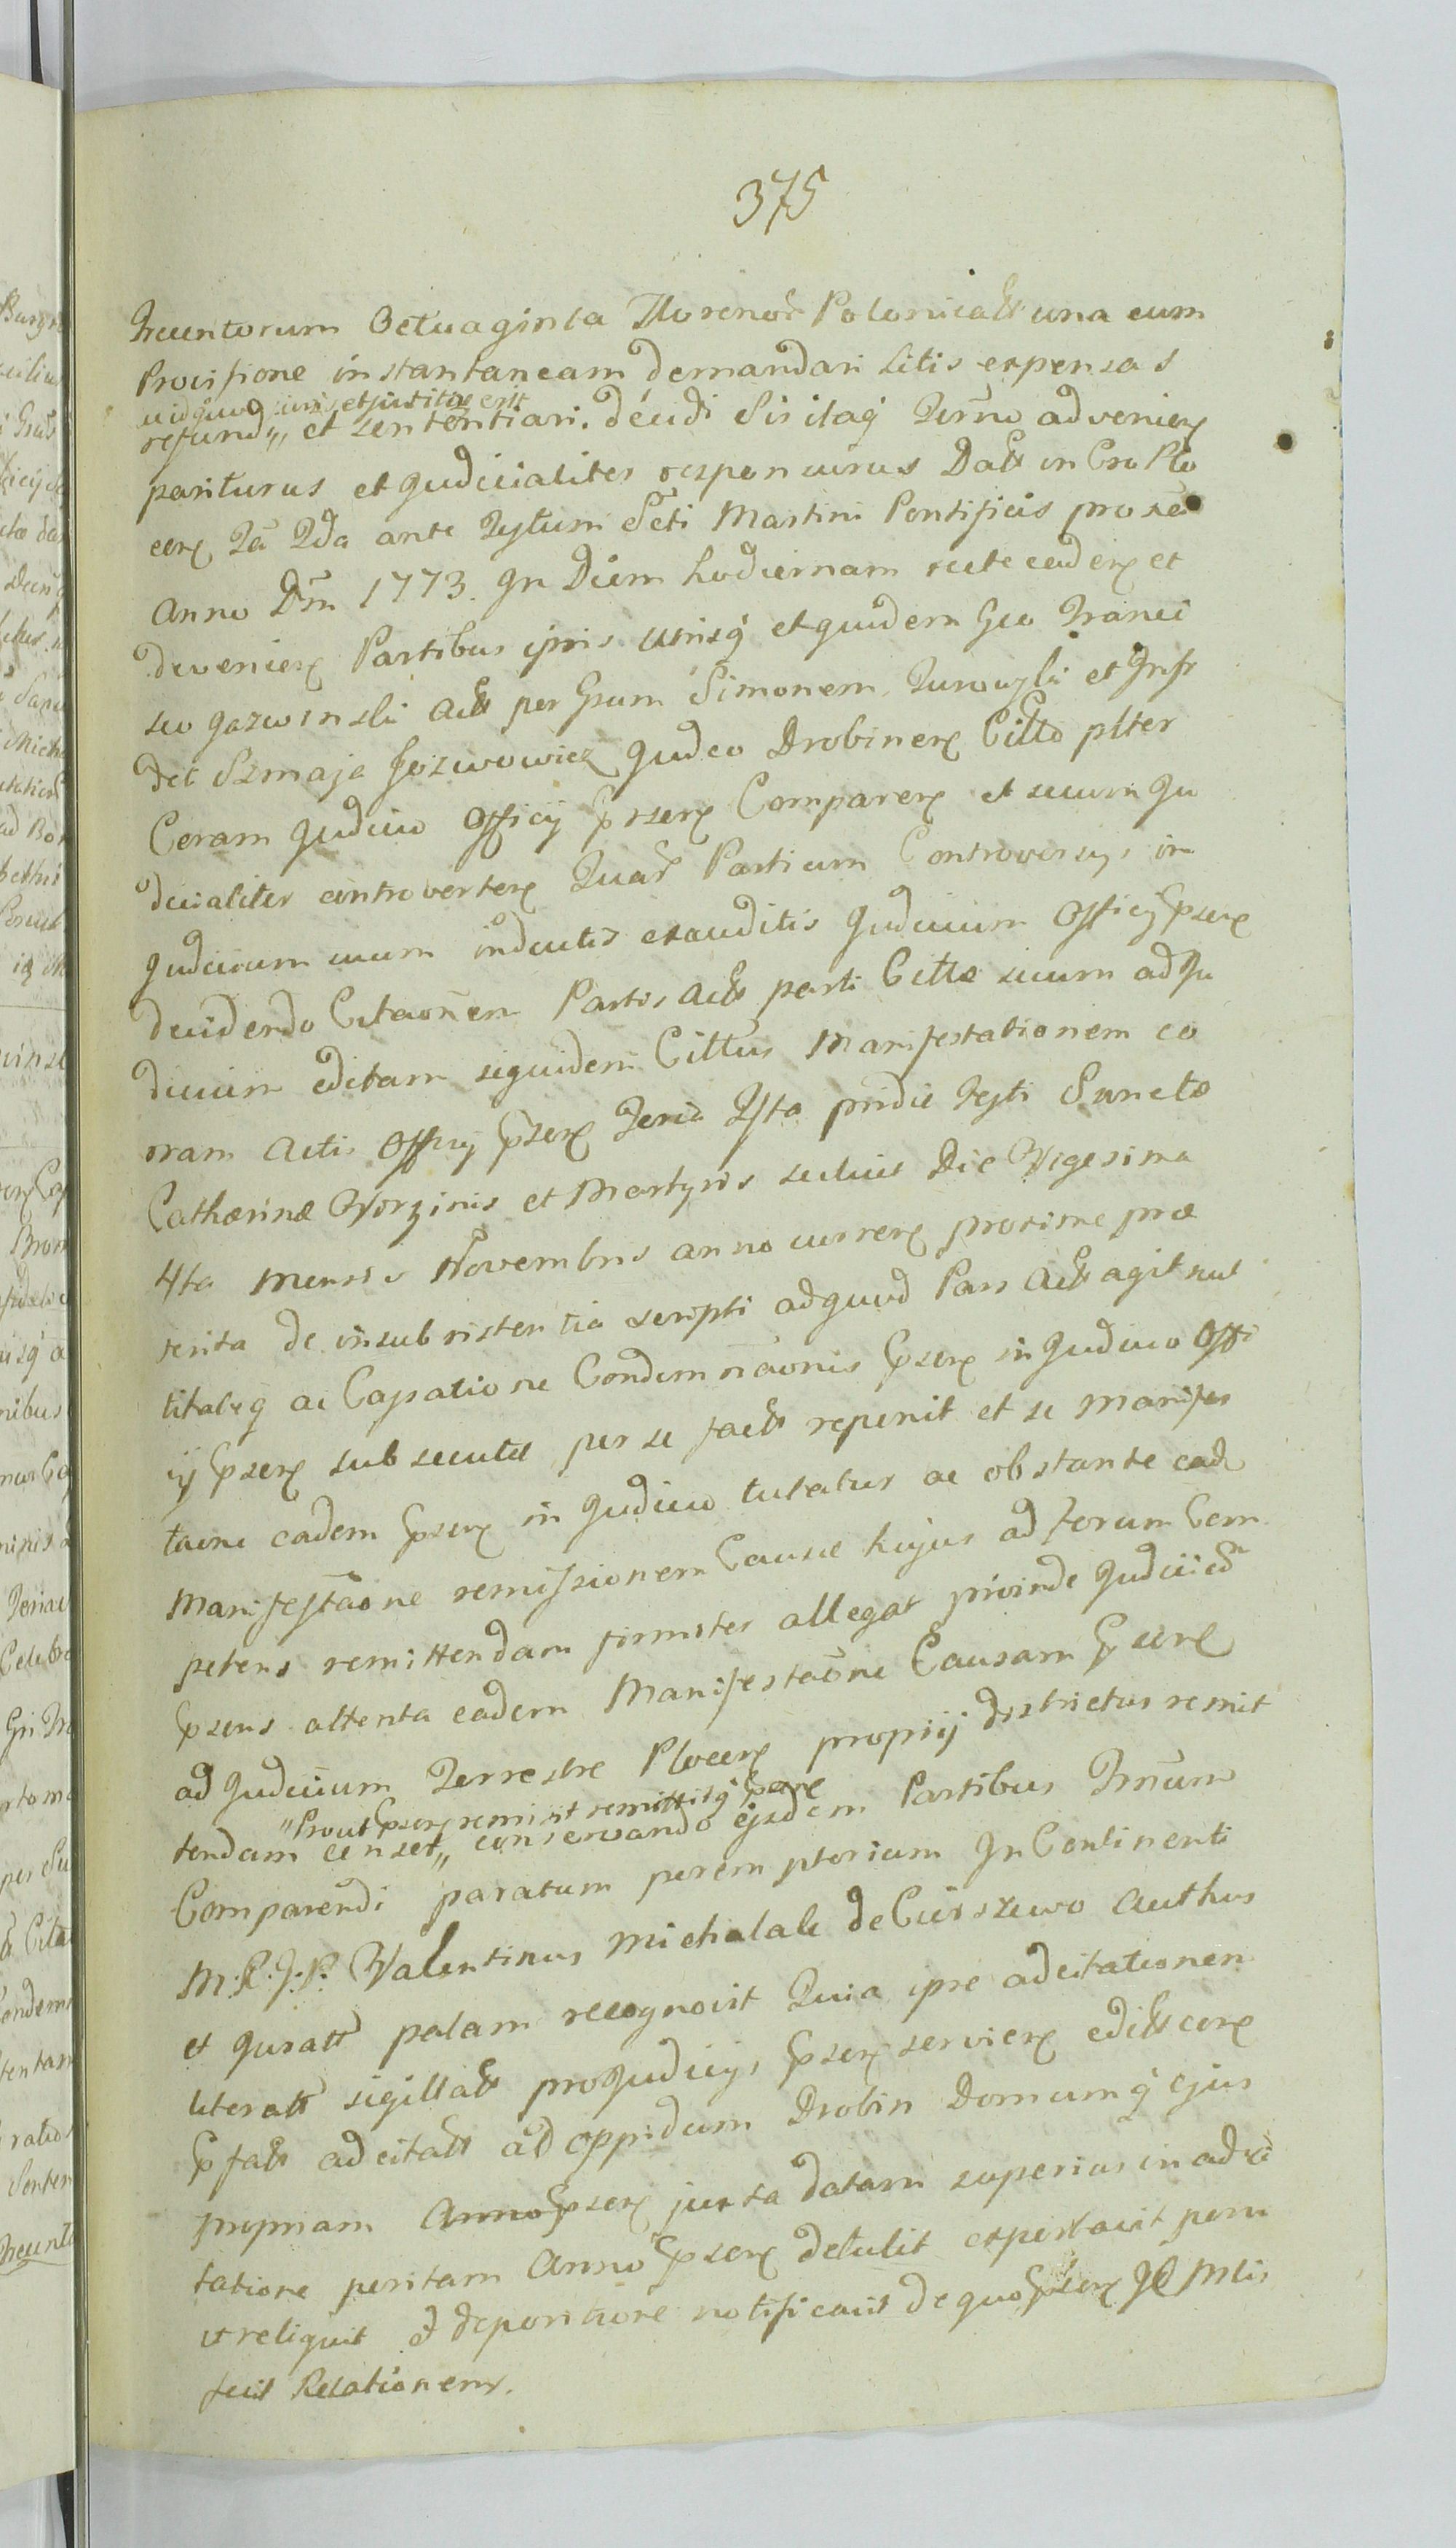 375
Trecentorum Octuaginta Florenor Polonical una cum
Provisione instantaneam demandari Litis expensas
uidquid juris et justitiæ erit
refund,, et sententiari. decidi Sis itaq Termo advenien
pariturus et Judicialiter responsurus Dat in Cro Plo
cen Fa 2da ante Festum Scti Martini Pontificis proxe
Anno Dni 1773. In Diem hodiernam recte caden et
devenien Partibus ipsis utrisq et quidem Gso Franci
sco Jazwinski Act per Gsum Simonem Turowski et Infr
det Szmaja Jozwowicz Judeo Drobinen Citto plter
Coram Judicio Officij Pnsen Comparen et secum Ju
dicialiter controverten Quar Partium Controversijs in
Judicium cum inductis exauditis Judicium Officij Pnsen
decidendo Citaonem Partis Act parti Cittæ secum ad Ju
dicium editam siquidem Cittus Manifestationem co
ram Actis Officij Pnsen Feria 4ta pridie Festi Sanctæ
Catharinæ Virginis et Martyris scilicet Die Vigesima
4ta mensis Novembris anno curren proxime præ
terita de insubsistentia scripti ad quod Pars Act agit nul
litateq ac Cassatione Condemnaonis Pnsen in Judicio Offi
ij Pnsen subsecutæ per se fact reperit et se manifes
taone eadem Pnsen in Judicio tutatur ac obstante ead
Manifestaone remissionem Causæ hujus ad forum Com
petens remittendam firmiter allegat proinde Judiciu
Pnsens attenta eadem Manifestaone Causam Pnsen
ad Judicium Terrestre Plocen proprij districtus remit
"Prout Pnsen remisit remittitq Pnsen
tendam censet,, conservando ejsdem Partibus Trnum
Comparendi paratum peremptorium In Continenti
M. R. J. P. Valentinus Michalak de Cieszewo Authus
et Juratt palam recognovit Quia ipse ad citationem
literatt sigillatt pro Judicijs Pnsen servien edit coræ
Pfatt ad citatt ad oppidum Drobin Domumq ejus
propriam Anno Pnsen juxta datam superius in ad ci
tatione peritam Anno Pnsen detulit expectavit posu
it reliquit et depositione notificavit de quo Pnsen Jl Mlis
fecit Relationem.